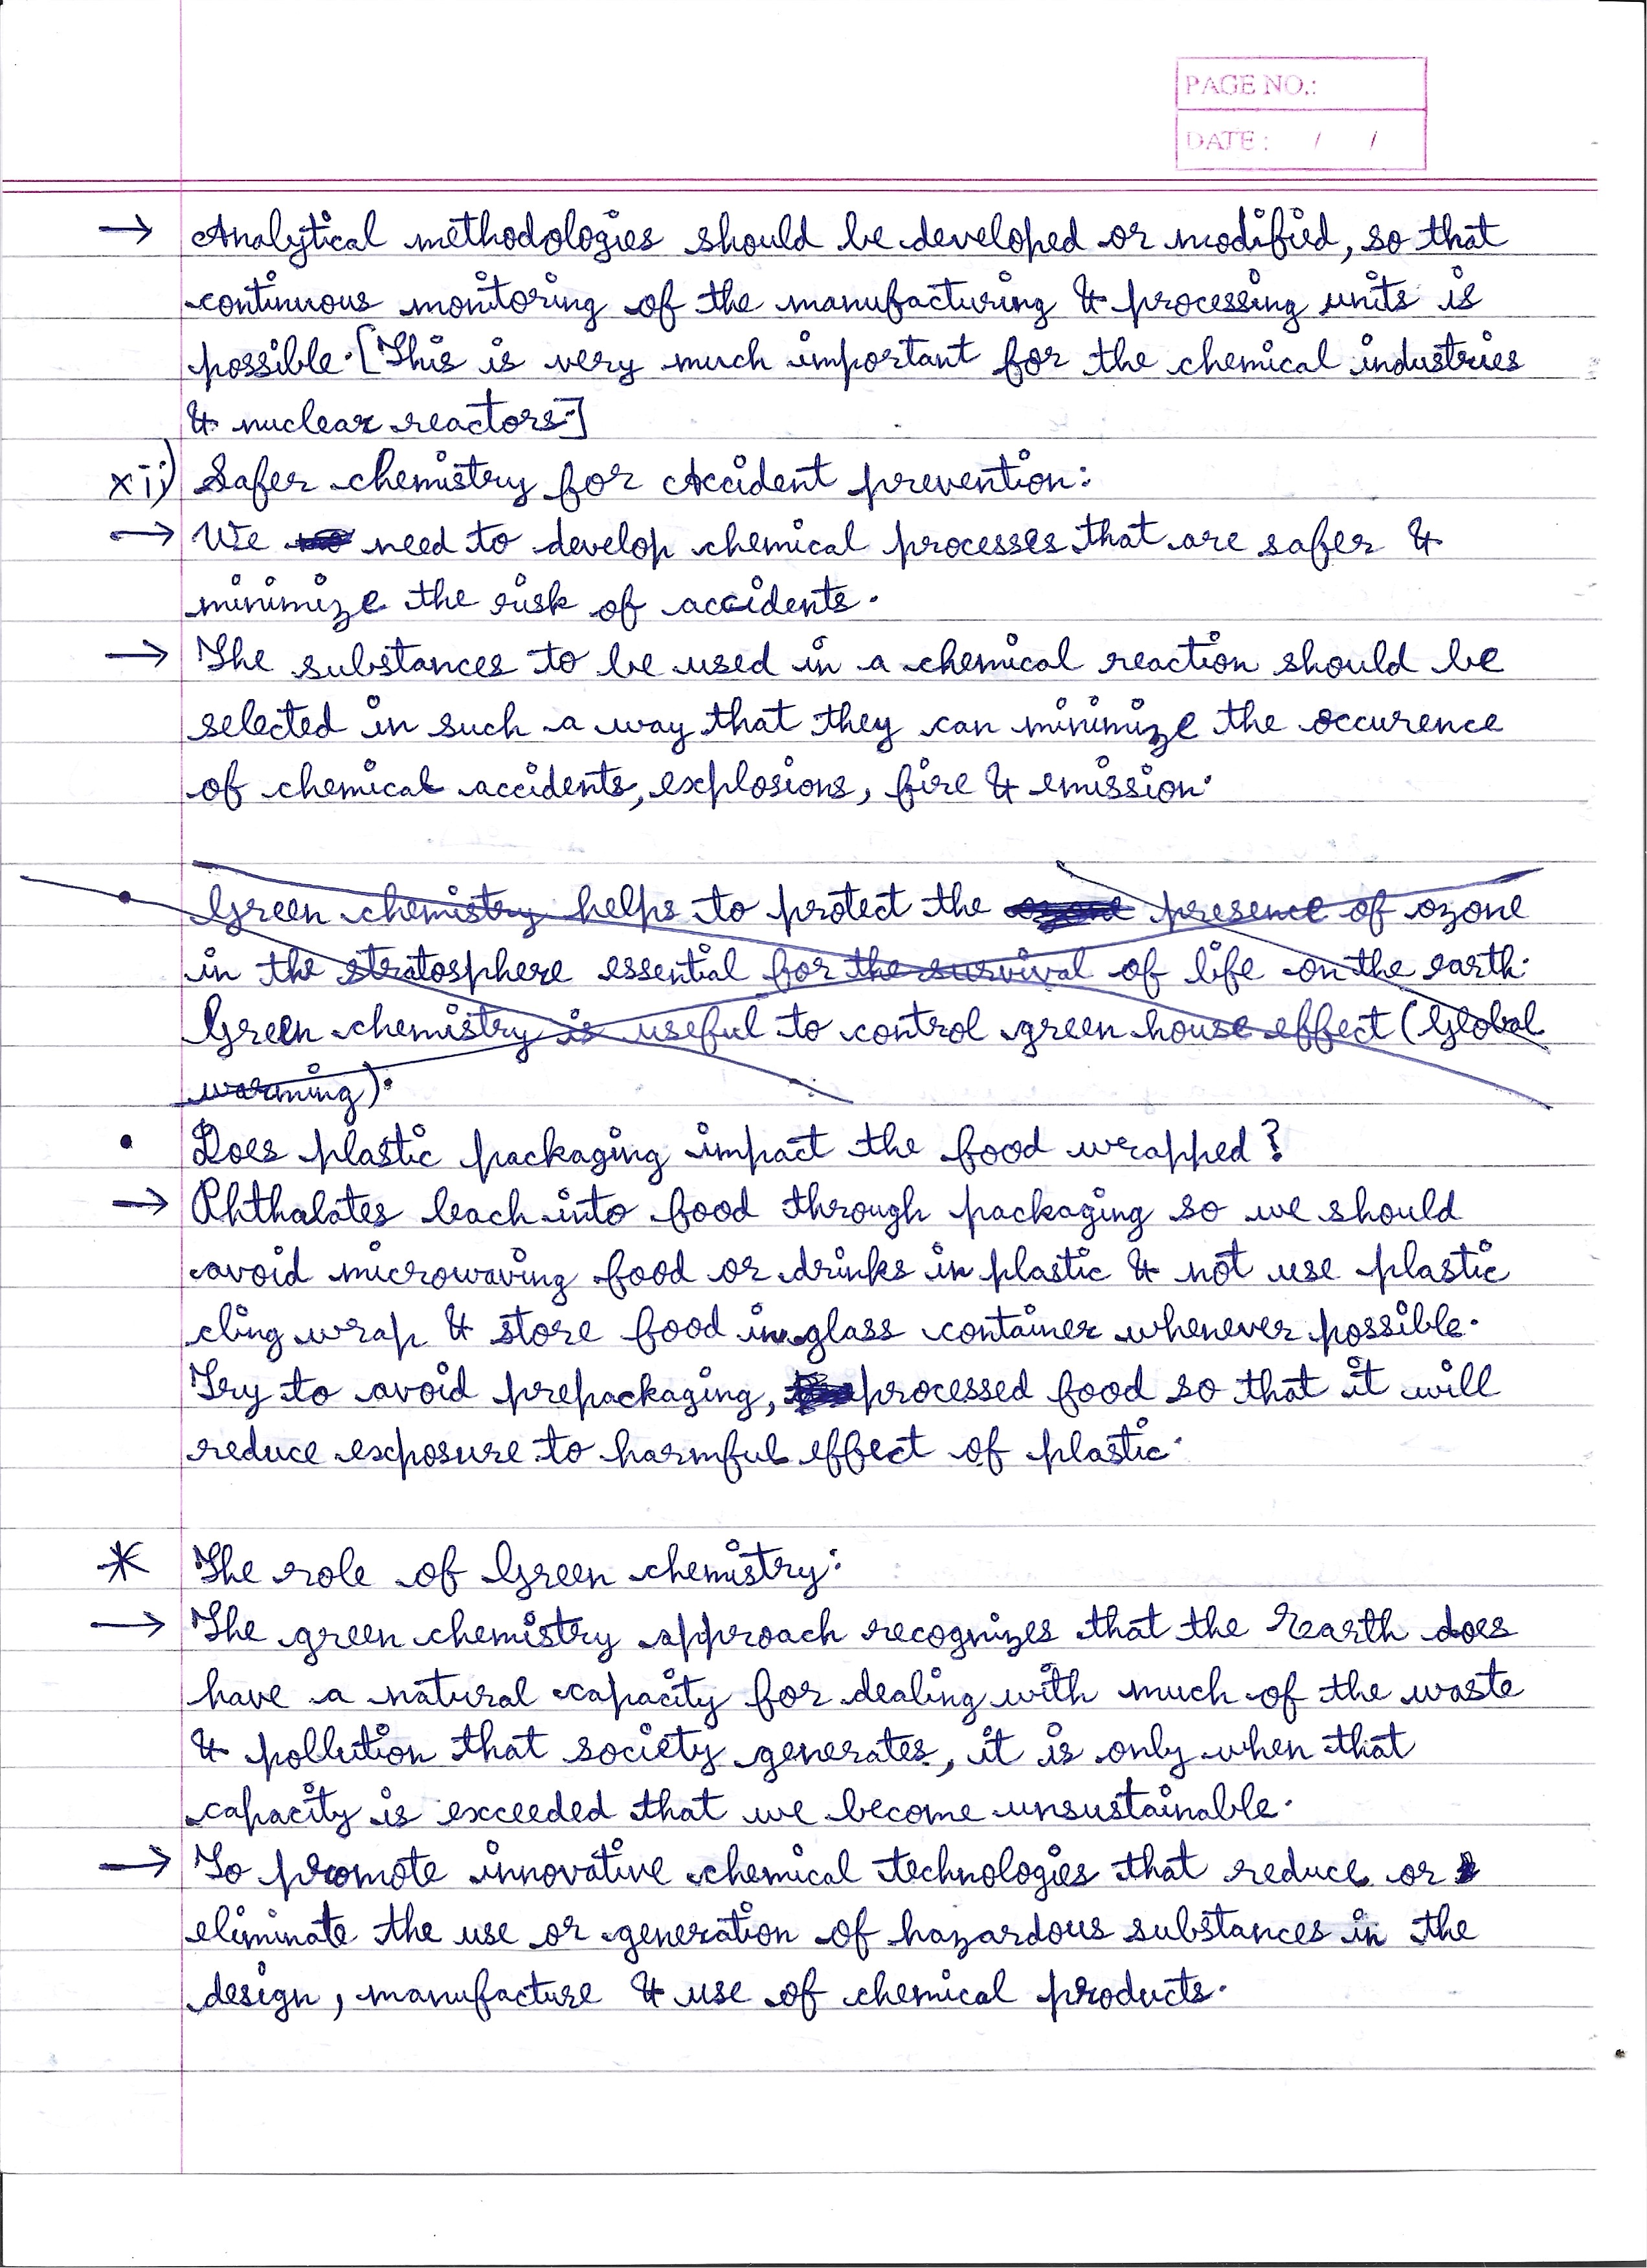 PAGE NO.:
DATE: / /
→ Analytical methodologies should be developed or modified, so that
continuous monitoring of the manufacturing & processing units is
possible. [This is very much important for the chemical industries
& nuclear reactors.]
xii) Safer chemistry for Accident prevention:
→ We need to develop chemical processes that are safer &
minimize the risk of accidents.
→ The substances to be used in a chemical reaction should be
selected in such a way that they can minimize the occurence
of chemical accidents, explosions, fire & emission.
• Green chemistry helps to protect the ozone presence of ozone
in the stratosphere essential for the survival of life on the earth.
Green chemistry is useful to control green house effect (Global
warming).
• Does plastic packaging impact the food wrapped?
→ Phthalates leach into food through packaging so we should
avoid microwaving food or drinks in plastic & not use plastic
cling wrap & store food in glass container whenever possible.
Try to avoid prepackaging, processed food so that it will
reduce exposure to harmful effect of plastic.
* The role of Green chemistry:
→ The green chemistry approach recognizes that the Earth does
have a natural capacity for dealing with much of the waste
& pollution that society generates, it is only when that
capacity is exceeded that we become unsustainable.
→ To promote innovative chemical technologies that reduce or
eliminate the use or generation of hazardous substances in the
design, manufacture & use of chemical products.